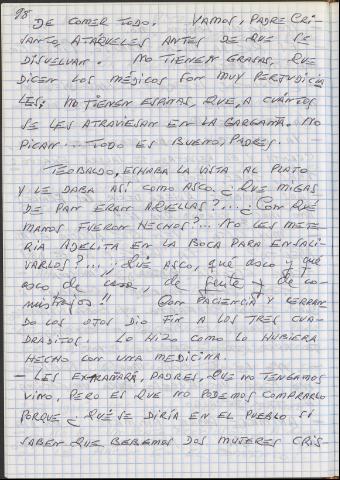 98
DE COMER TODO. VAMOS, PADRE CRI-
SANTO, ATAQUELES ANTES DE QUE SE
DISUELVAN. NO TIENEN GRASAS, QUE
DICEN LOS MÉDICOS SON MUY PERJUDICIA
LES; NO TIENEN ESPINAS, QUE, A CUÁNTOS
SE LES ATRAVIESAN EN LA GARGANTA. NO
PICAN... TODO ES BUENO, PADRES.
TEOBALDO, ECHABA LA VISTA AL PLATO
Y LE DABA ASÍ COMO ASCO. ¿QUE MIGAS
DE PAN ERAN AQUELLAS?... ¿CON QUÉ
MANOS FUERON HECHOS?... NO LES METE-
RÍA ADELITA EN LA BOCA PARA ENSALI-
VARLOS?... ¡¡QUÉ ASCO, qué asco y qué
asco de casa, de gente y de co-
mistrajos!! CON PACIENCIA Y CERRAN
DO LOS OJOS DIO FIN A LOS TRES CUA-
DRADITOS. LO HIZO COMO LO HUBIERA
HECHO CON UNA MEDICINA.
— LES EXTRAÑARÁ, PADRES, QUE NO TENGAMOS
VINO, PERO ES QUE NO PODEMOS COMPRARLO
PORQUE ¿QUÉ SE DIRÍA EN EL PUEBLO SI
SABEN QUE BEBEMOS DOS MUJERES CRIS-